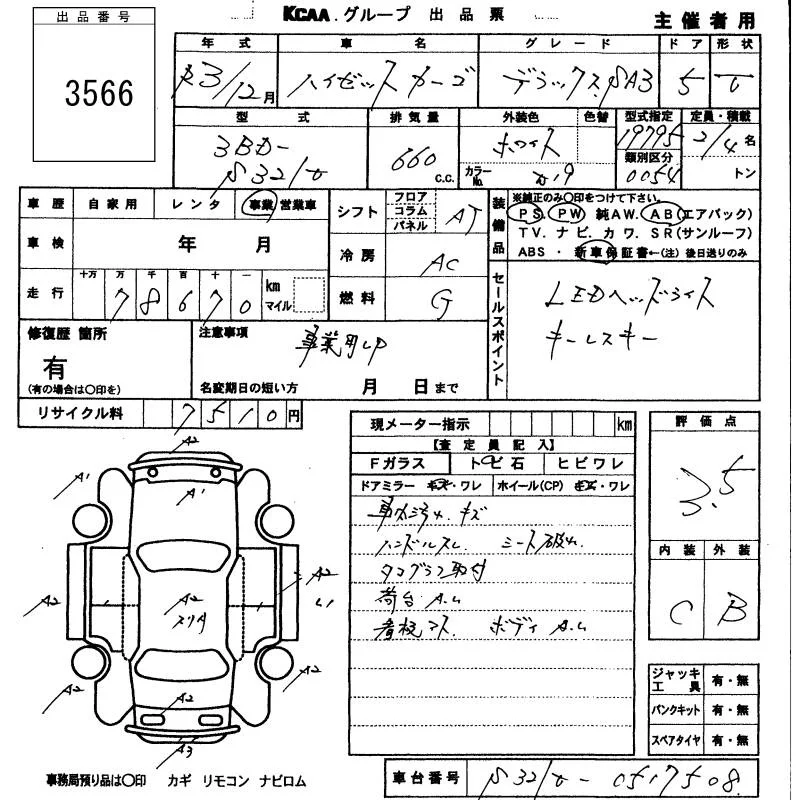 KCAA.グループ 出品票
主催者用
出品番号
3566
年式 車名 グレード ドア 形状
R3/12月 ハイゼットカーゴ デラックス.SA3 5 V
型式 排気量 外装色 色替 型式指定 定員・積載
3BD- 660 c.c. ホワイト 19795 2/4名
S321V カラーNo. 類別区分 0054 トン
車歴 自家用 レンタ 事業 営業車
シフト フロア コラム パネル AT
装備品 ※純正のみ○印をつけて下さい。
PS. PW 純AW. AB(エアバック)
TV. ナビ. カワ. SR(サンルーフ)
ABS ・ 新車保証書←(注)後日送りのみ
車検 年 月
冷房 AC
走行 十万 万 千 百 十 一
78670 km マイル
燃料 G
セールスポイント
LEDヘッドライト
キーレスキー
修復歴 箇所
有
(有の場合は○印を)
注意事項 事業用UP
名変期日の短い方 月 日まで
リサイクル料 7510円
現メーター指示 km
【査定員記入】
Fガラス トビ石 ヒビワレ
ドアミラー キズ・ワレ ホイール(CP) キズ・ワレ
車内汚れ キズ
ハンドルスレ シート破れ
タコグラフ取付
荷台 A.U
看板マス. ボディ A.U
評価点
3.5
内装 外装
C B
ジャッキ工具 有・無
パンクキット 有・無
スペアタイヤ 有・無
A2
A1
A1
A2
A2
A2
A2
A2
A2
A2
A3
事務局預り品は○印 カギ リモコン ナビロム
車台番号 S321V-0517508